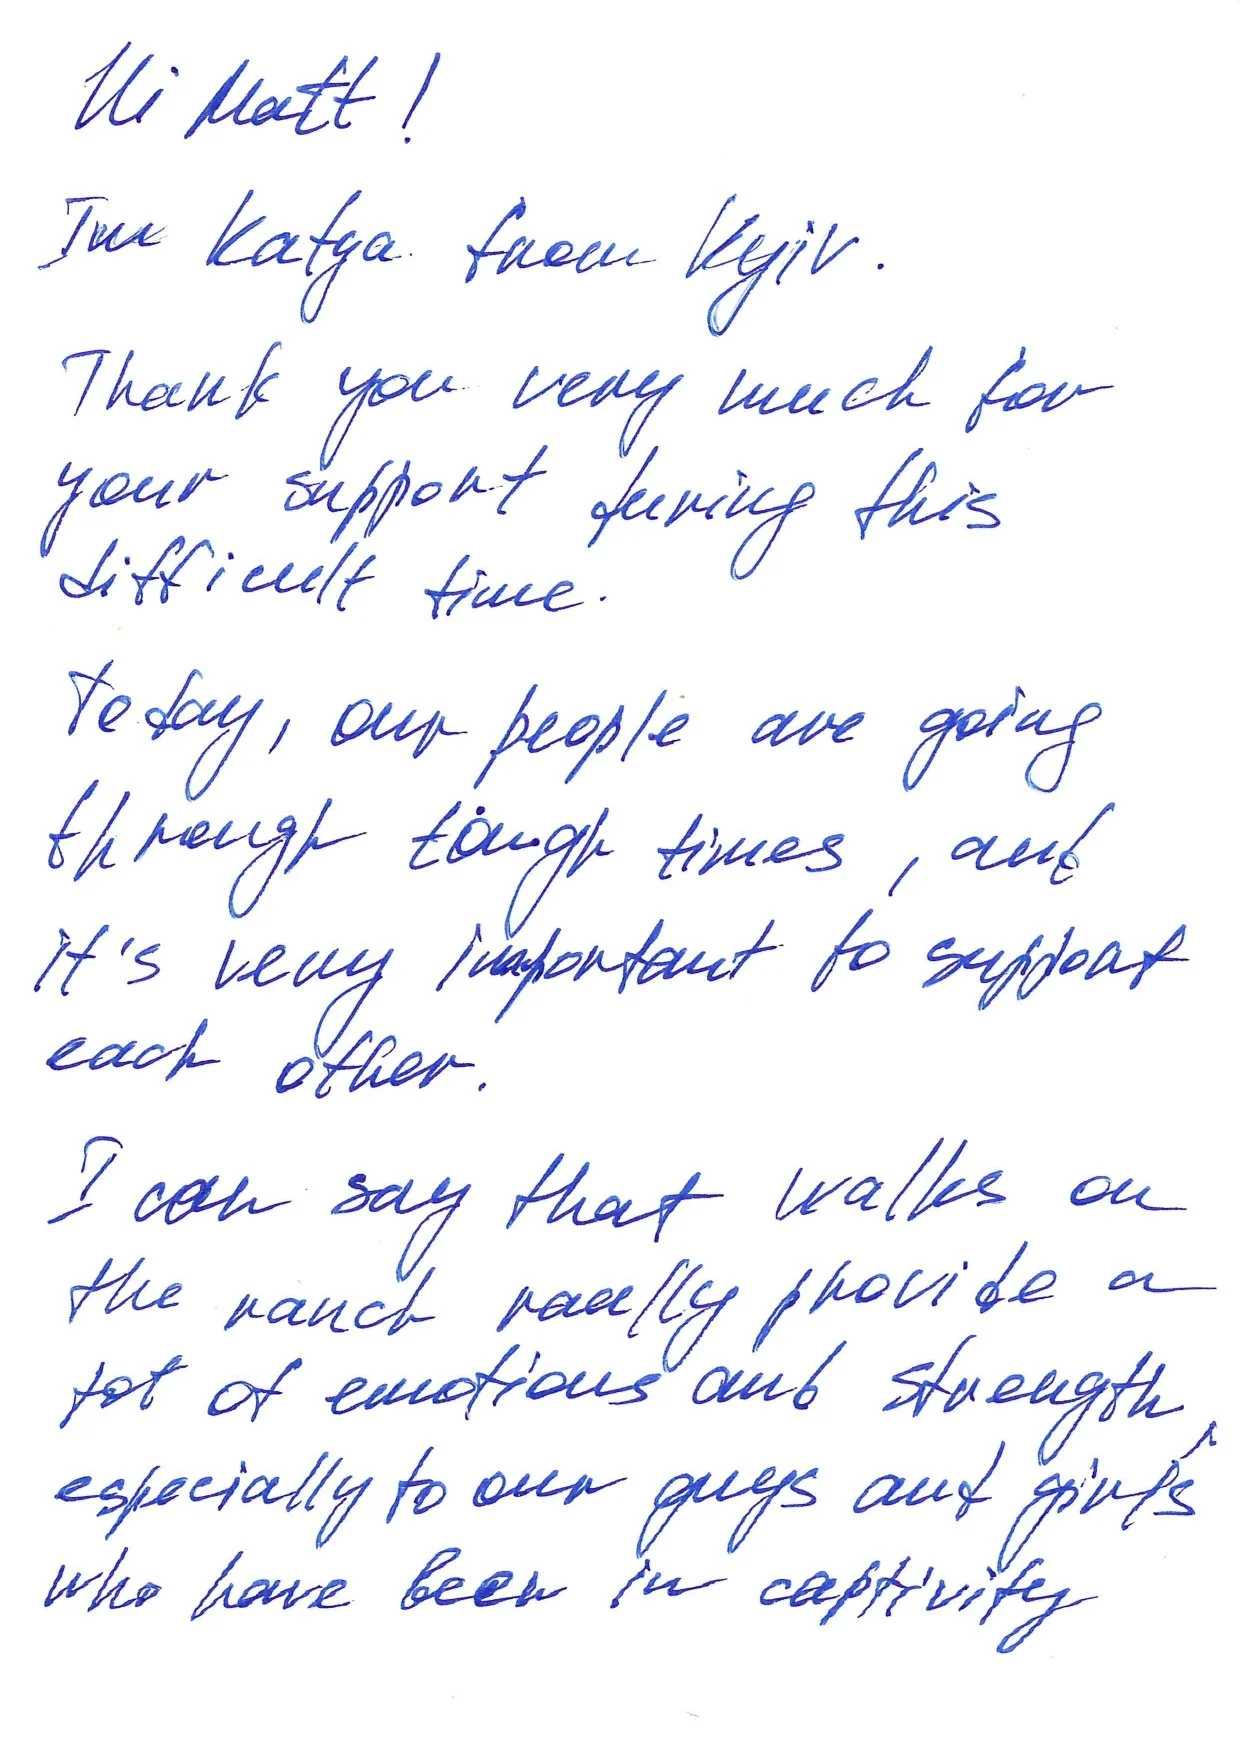 Hi Matt!
Im Katya from Kyiv.
Thank you very much for
your support during this
difficult time.
Today, our people are going
through tough times, and
it's very important to support
each other.
I can say that walks on
the ranch really provide a
lot of emotions and strength,
especially to our guys and girls
who have been in captivity